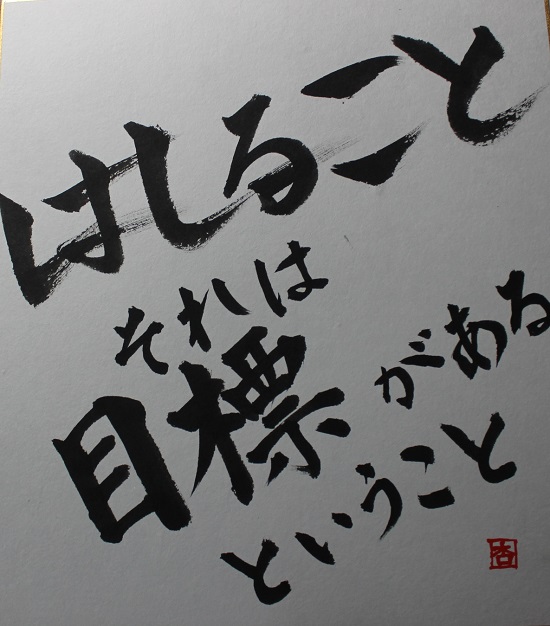 はしること
それは
目標がある
ということ
杏